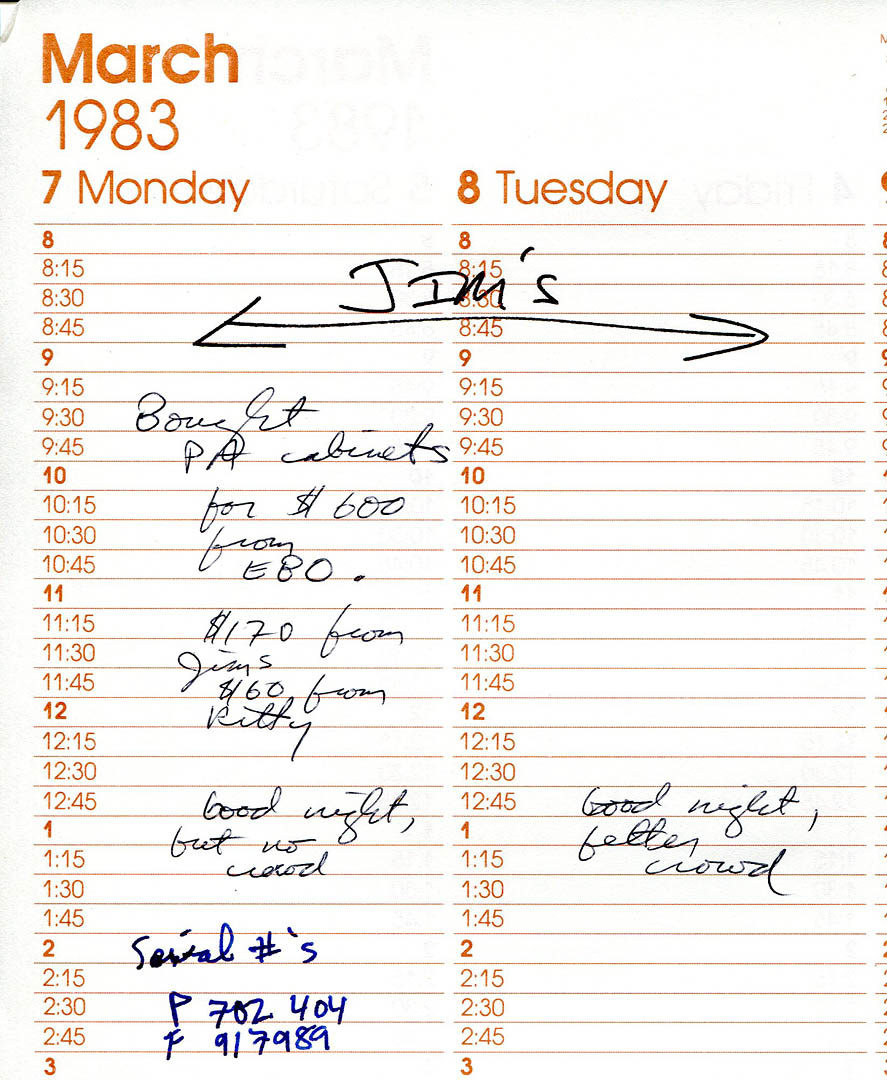 March
1983
7 Monday
8
8:15
8:30
8:45
9
9:15
9:30
9:45
10
10:15
10:30
10:45
11
11:15
11:30
11:45
12
12:15
12:30
12:45
1
1:15
1:30
1:45
2
2:15
2:30
2:45
3
JIM's
Bought
PA cabinets
for $600
from
EBO.
$170 from
Jims
$60 from
Kitty
Good night,
but no
crowd
Serial #'s
P 702 404
F 917989
8 Tuesday
8
8:15
8:30
8:45
9
9:15
9:30
9:45
10
10:15
10:30
10:45
11
11:15
11:30
11:45
12
12:15
12:30
12:45
1
1:15
1:30
1:45
2
2:15
2:30
2:45
3
Good night,
better
crowd